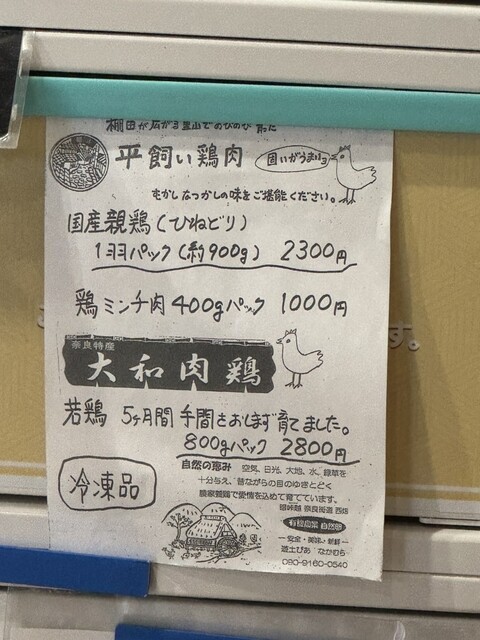 棚田が広がる里山でのびのび育った
平飼い鶏肉
固いがうまいヨ
むかしなつかしの味をご堪能ください。
国産親鶏(ひねどり)
1羽パック(約900g) 2300円
鶏ミンチ肉 400gパック 1000円
奈良特産
大和肉鶏
若鶏 5ヶ月間 手間をおしまず育てました。
800gパック 2800円
冷凍品
自然の恵み 空気、日光、大地、水、緑草を
十分与え、昔ながらの目のゆきとどく
農家養鶏で愛情を込めて育てています。
奈良街道
有精卵 自然卵
―安全・美味・新鮮―
遊土ぴあ なかむら
090-9160-0540